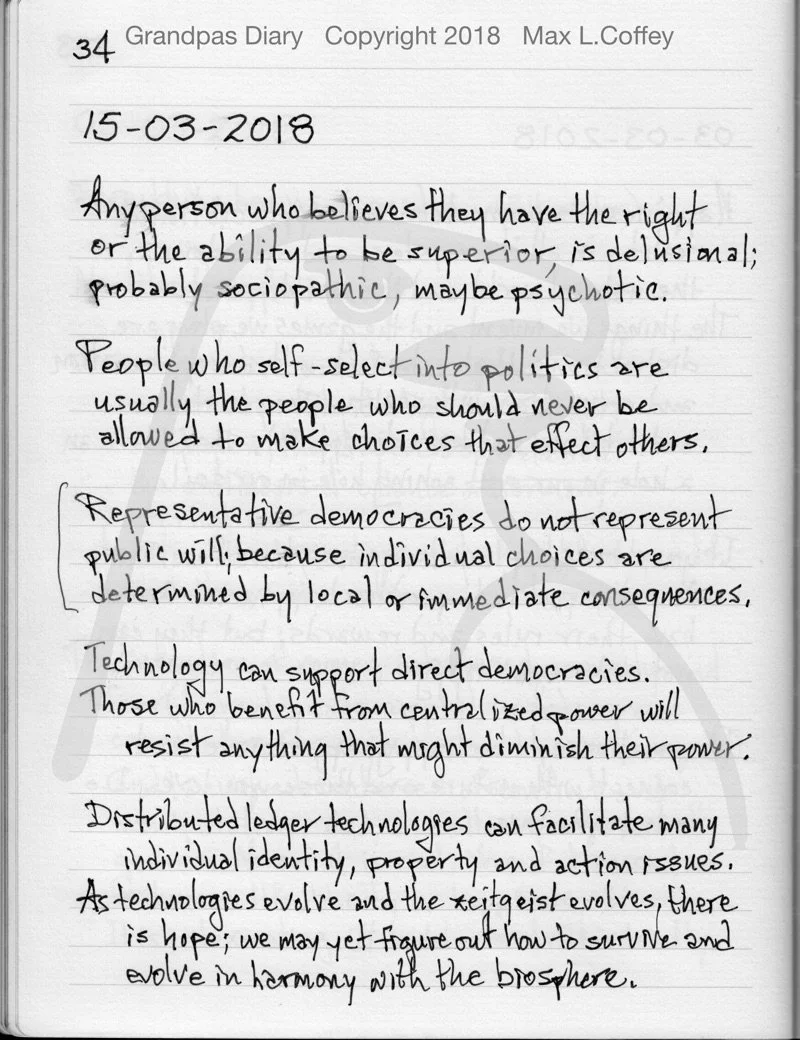 34 Grandpas Diary Copyright 2018 Max L.Coffey
15-03-2018
Any person who believes they have the right
or the ability to be superior, is delusional;
probably sociopathic, maybe psychotic.
People who self-select into politics are
usually the people who should never be
allowed to make choices that effect others.
Representative democracies do not represent
public will; because individual choices are
determined by local or immediate consequences.
Technology can support direct democracies.
Those who benefit from centralized power will
resist anything that might diminish their power.
Distributed ledger technologies can facilitate many
individual identity, property and action issues.
As technologies evolve and the zeitgeist evolves, there
is hope; we may yet figure out how to survive and
evolve in harmony with the biosphere.